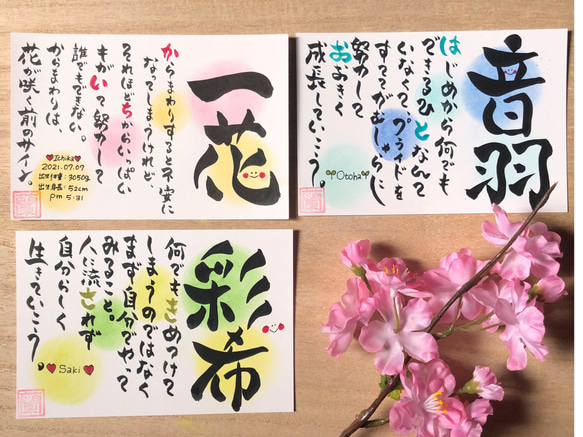 一花
からまわりすると不安に
なってしまうけれど、
それほどちからいっぱい
もがいて努力して
誰でもできない。
からまわりは、
花が咲く前のサイン。
Ichika
2021.07.07
出生体重:3050g
出生身長:52cm
pm 5:31
音羽
はじめから何でも
できるひとなんて
いなくて、プライドを
すててがむしゃらに
努力して
おおきく
成長していこう。
Otoha
彩希
何でもきめつけて
しまうのではなく
まず自分でやって
みること。
人に流されず
自分らしく
生きていこう。
Saki